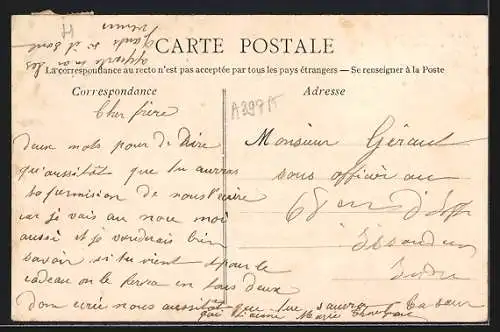 CARTE POSTALE
La correspondance au recto n'est pas acceptée par tous les pays étrangers — Se renseigner à la Poste
Correspondance
Adresse
A397A
Cher frère
deux mots pour de dire
qu'aussitôt que tu auras
ta permision de nous l'ecrire
car je vais au moi
aussi et je voudrais bien
savoir si tu vient pour le
cadeau on le fera en tous deux
donc ecris nous aussitôt que tu saura
qui t'aime Marie
Monsieur Géraut
sous officier au
68 em d'Inf
Issoudun
Indre
apporte moi les
gants si il sont
venus